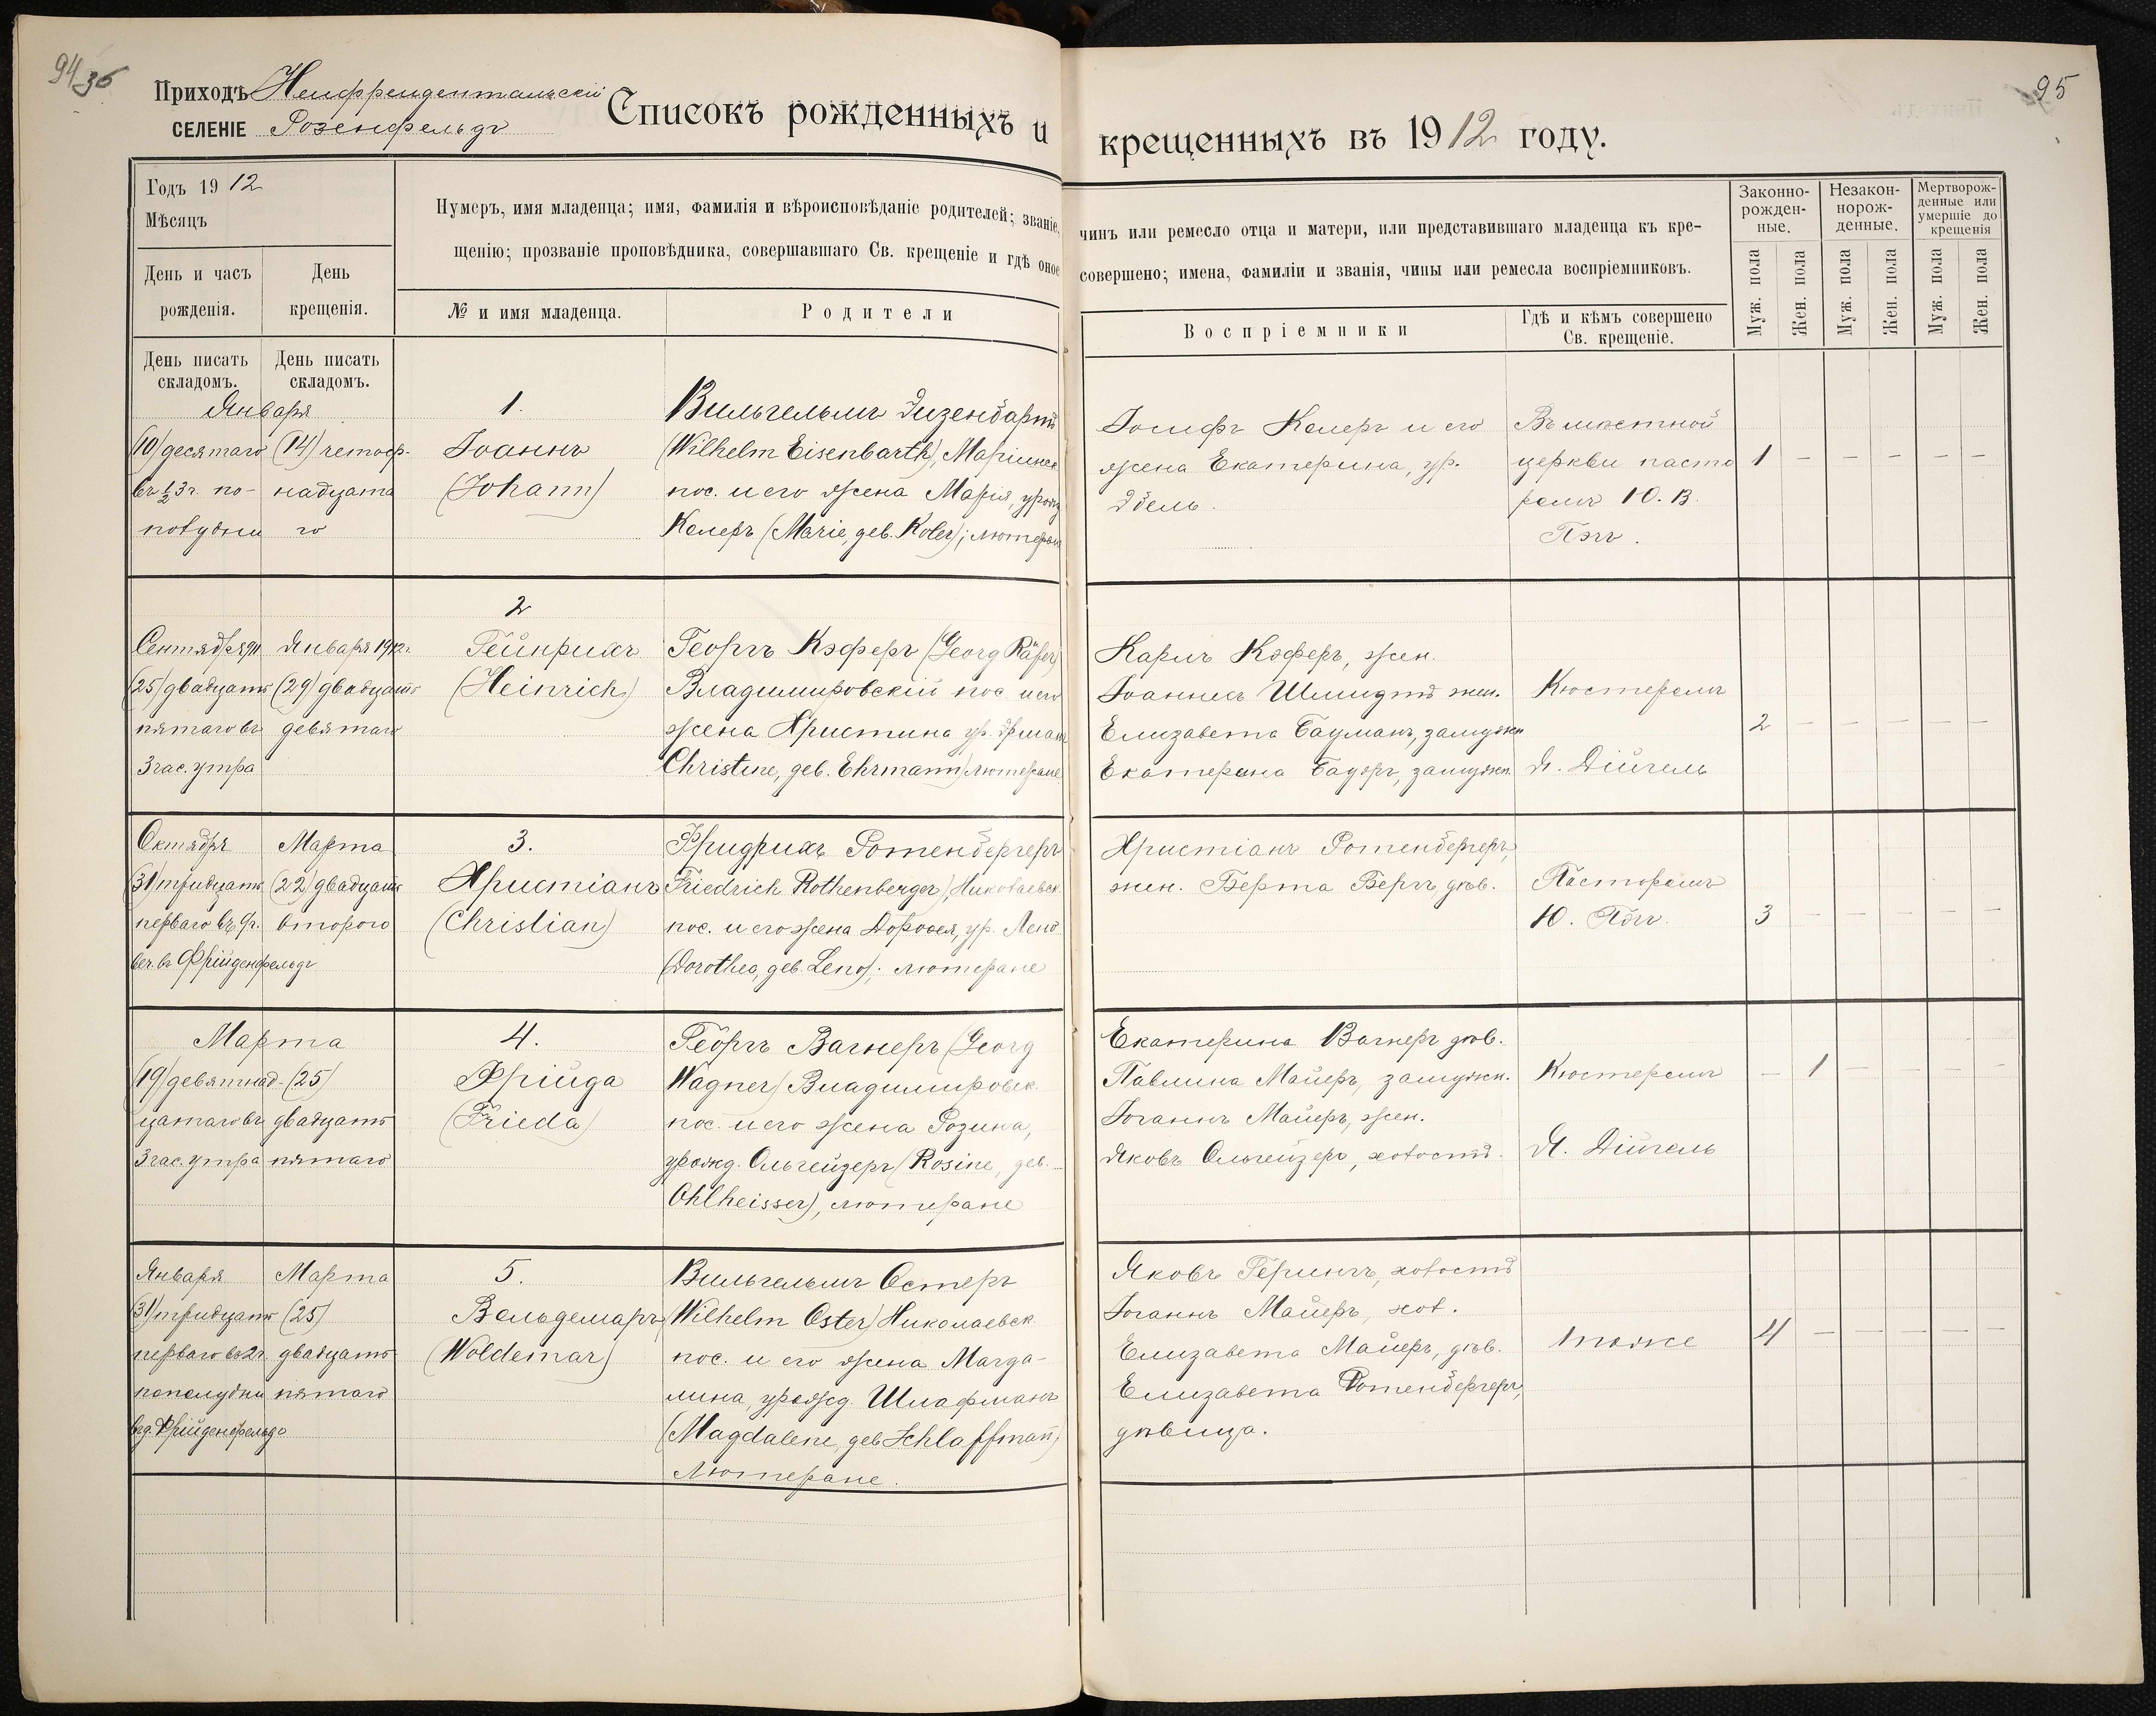 94
36
95
Приходъ Нейфрейдентальскій
СЕЛЕНІЕ Розенфельдъ
Списокъ рожденныхъ и крещенныхъ въ 1912 году.
Годъ 1912
Мѣсяцъ
День и часъ рожденія.
День крещенія.
Нумеръ, имя младенца; имя, фамилія и вѣроисповѣданіе родителей; званіе, чинъ или ремесло отца и матери, или представившаго младенца къ кре-
щенію; прозваніе проповѣдника, совершавшаго Св. крещеніе и гдѣ оное совершено; имена, фамиліи и званія, чины или ремесла воспріемниковъ.
№ и имя младенца.
Родители
Воспріемники
Гдѣ и кѣмъ совершено
Св. крещеніе.
Законно-
рожден-
ные.
Незакон-
норож-
денные.
Мертворож-
денные или
умершіе до
крещенія
Муж. пола
Жен. пола
Муж. пола
Жен. пола
Муж. пола
Жен. пола
День писать
складомъ.
День писать
складомъ.
Января
(10) десятаго
въ ½3 ч. по-
полудни
(14) четыр-
надцата
го
1.
Іоаннъ
(Johann)
Вильгельмъ Эизенбартъ
(Wilhelm Eisenbarth), Маріинск
пос. и его жена Марія, урожд
Келеръ (Marie, geb. Koler); лютеране
Іосифъ Келеръ и его
жена Екатерина, ур.
Эбель.
Въ мѣстной
церкви пасто
ромъ Ю. В.
Пэчъ.
1 – – – – –
Сентября 911
(25) двадцать
пятаго въ
3 час. утра
Января 1912 г.
(29) двадцать
девятаго
2
Гейнрихъ
(Heinrich)
Георгъ Кэферъ (Georg Käfer)
Владимировскій пос. и его
жена Христина ур. Эрманъ
Christine, geb. Ehrmann) лютеране
Карлъ Кэферъ, жен.
Іоаннесъ Шмидтъ жен.
Елизавета Бауманъ, замужн
Екатерина Бауэръ, замужн.
Кюстеромъ
Я. Дійгель
2 – – – – –
Октября
(31) тридцать
перваго въ 9 ч.
веч. въ Фрійденфельдъ
Марта
(22) двадцать
второго
3.
Христіанъ
(Christian)
Фридрихъ Ротенбергеръ
Friedrich Rothenberger), Николаевск.
пос. и его жена Доротея, ур. Ленъ
(Dorothea, geb. Leno); лютеране
Христіанъ Ротенбергеръ,
жен. Берта Бергъ дѣв.
Пасторомъ
Ю. Пэчъ
3 – – – – –
Марта
(19) девятнад-
цатаго въ
3 час. утра
(25)
двадцать
пятаго
4.
Фрійда
(Frieda)
Георгъ Вагнеръ (Georg
Wagner) Владимировск.
пос. и его жена Розина,
урожд. Ольгейзеръ (Rosine, geb.
Ohlheisser), лютеране
Екатерина Вагнеръ дѣв.
Павлина Майеръ, замужн.
Іоганнъ Майеръ, жен.
Яковъ Ольгейзеръ, холостъ.
Кюстеромъ
Я. Дійгель
– 1 – – – –
Января
(31) тридцать
перваго въ 2 ч.
пополудни
въ д. Фрійденфельдъ
Марта
(25)
двадцать
пятаго
5.
Вольдемаръ
(Woldemar)
Вильгельмъ Остеръ
Wilhelm Oster) Николаевск.
пос. и его жена Магда-
лина, урожд. Шлафманъ
(Magdalene, geb Schlaffmañ)
Лютеране.
Яковъ Герингъ, холостъ
Іоганнъ Майеръ, хол.
Елизавета Майеръ, дѣв.
Елизавета Ротенбергеръ,
дѣвица.
тоже
4 – – – – –